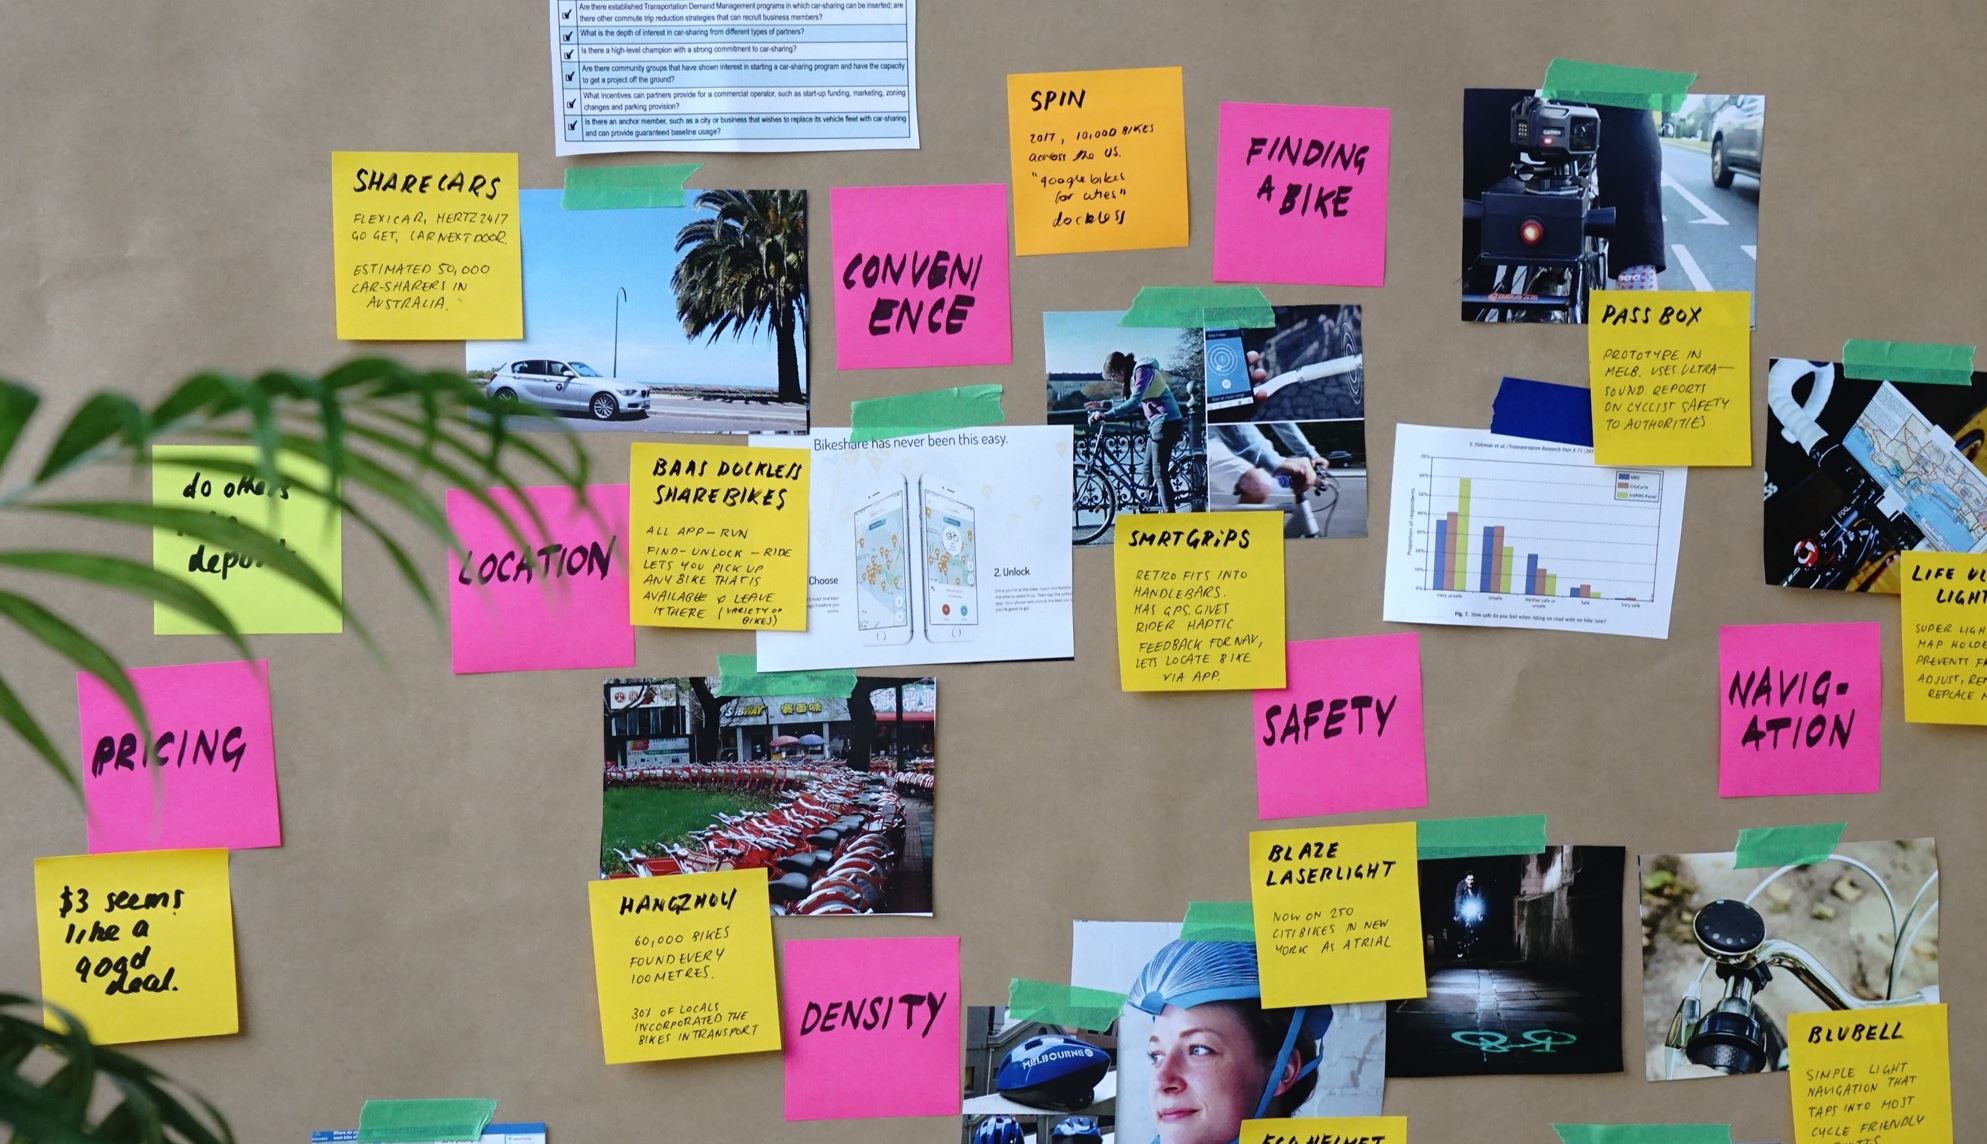 Are there established Transportation Demand Management programs in which car-sharing can be inserted; are
there other commute trip reduction strategies that can recruit business members?
What is the depth of interest in car-sharing from different types of partners?
Is there a high-level champion with a strong commitment to car-sharing?
Are there community groups that have shown interest in starting a car-sharing program and have the capacity
to get a project off the ground?
What incentives can partners provide for a commercial operator, such as start-up funding, marketing, zoning
changes and parking provision?
Is there an anchor member, such as a city or business that wishes to replace its vehicle fleet with car-sharing
and can provide guaranteed baseline usage?
SHARECARS
FLEXICAR, HERTZ 24/7
GO GET, CARNEXTDOOR
ESTIMATED 50,000
CAR-SHARERS IN
AUSTRALIA.
CONVENI
ENCE
SPIN
2017, 10,000 BIKES
across the US.
"google bikes
for cities"
dockless
FINDING
A BIKE
GARMIN
PASS BOX
PROTOTYPE IN
MELB. USES ULTRA-
SOUND. REPORTS
ON CYCLIST SAFETY
TO AUTHORITIES
do others
LOCATION
BAAS DOCKLESS
SHAREBIKES
ALL APP-RUN
FIND-UNLOCK-RIDE
LETS YOU PICK UP
ANY BIKE THAT IS
AVAILABLE & LEAVE
IT THERE (VARIETY OF
BIKES)
Bikeshare has never been this easy.
Choose
2. Unlock
SMRTGRIPS
RETRO FITS INTO
HANDLEBARS.
HAS GPS. GIVES
RIDER HAPTIC
FEEDBACK FOR NAV,
LETS LOCATE BIKE
VIA APP.
Proportion of respondents
CityCycle
Very unsafe
Unsafe
Neither safe or
unsafe
Safe
Very safe
Fig. 7. How safe do you feel when riding on road with no bike lane?
LIGHT
SUPER LIGH
MAP HOLDE
ADJUST, RE
REPLACE
PRICING
$3 seems
like a
good
deal.
SUBWAY
HANGZHOU
60,000 BIKES
FOUND EVERY
100 METRES.
30% OF LOCALS
INCORPORATED THE
BIKES IN TRANSPORT
DENSITY
SAFETY
NAVIG-
ATION
BLAZE
LASERLIGHT
NOW ON 250
CITIBIKES IN NEW
YORK AS A TRIAL
MELBOURNE
ECO HELMET
BLUBELL
SIMPLE LIGHT
NAVIGATION THAT
TAPS INTO MOST
CYCLE FRIENDLY